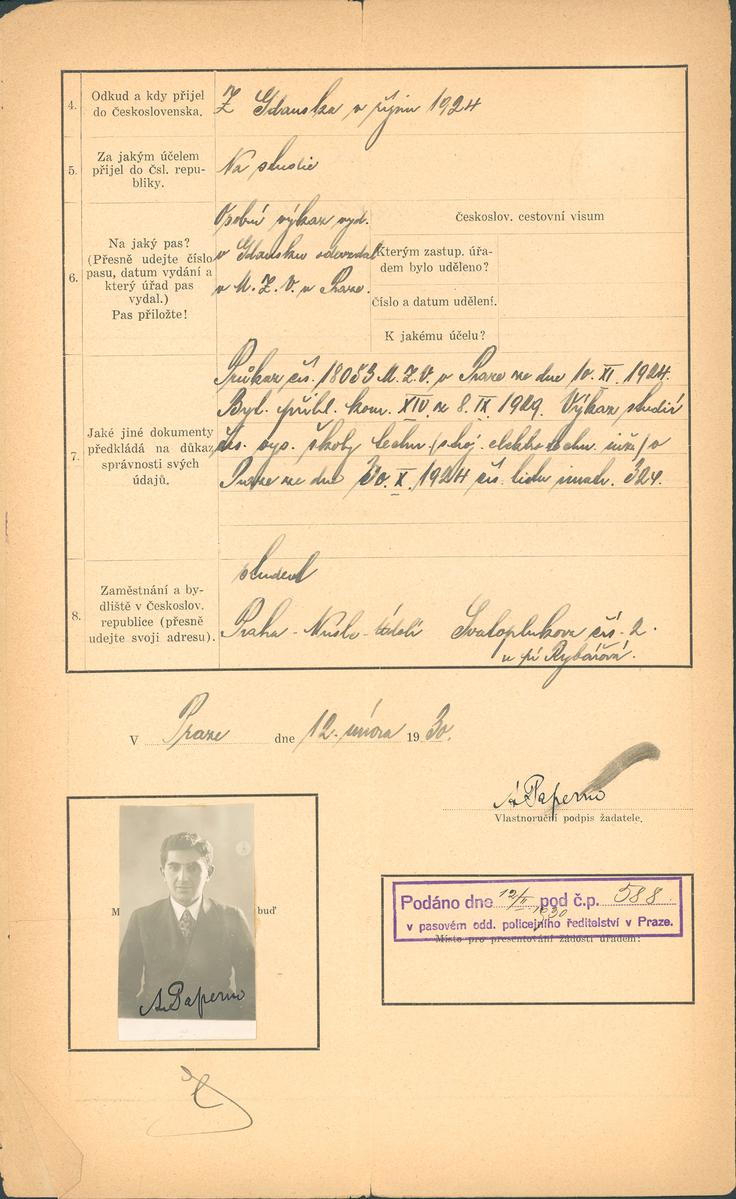 4. Odkud a kdy přijel
do Československa.
Z Gdanska v říjnu 1924
5. Za jakým účelem
přijel do čsl. repu-
bliky.
Na studie
6. Na jaký pas?
(Přesně udejte číslo
pasu, datum vydání a
který úřad pas
vydal.)
Pas přiložte!
Osobní výkaz vyd.
v Gdansku odevzdal
v M. Z. V. v Praze.
Českoslov. cestovní visum
Kterým zastup. úřa-
dem bylo uděleno?
Číslo a datum udělení.
K jakému účelu?
7. Jaké jiné dokumenty
předkládá na důkaz
správnosti svých
údajů.
Průkaz čís. 18053 M. Z. V. v Praze ze dne 10. XI. 1924.
Byl. přihl. kom. XIV ze 8. IX 1929. Výkaz studií
čes. vys. školy techn. (stroj. elektrotechn. inž.) v
Praze ze dne 30. X. 1924 čís. listu imatr. 324.
8. Zaměstnání a by-
dliště v Českoslov.
republice (přesně
udejte svoji adresu).
student
Praha - Nusle - údolí Svatoplukova čís. 2.
u pí Rybářová.
V Praze dne 12. února 1930.
A. Paperno
Vlastnoruční podpis žadatele.
M buď
A. Paperno
Podáno dne 12/II 1930 pod č.p. 588
v pasovém odd. policejního ředitelství v Praze.
Místo pro presentování žádosti úřadem: